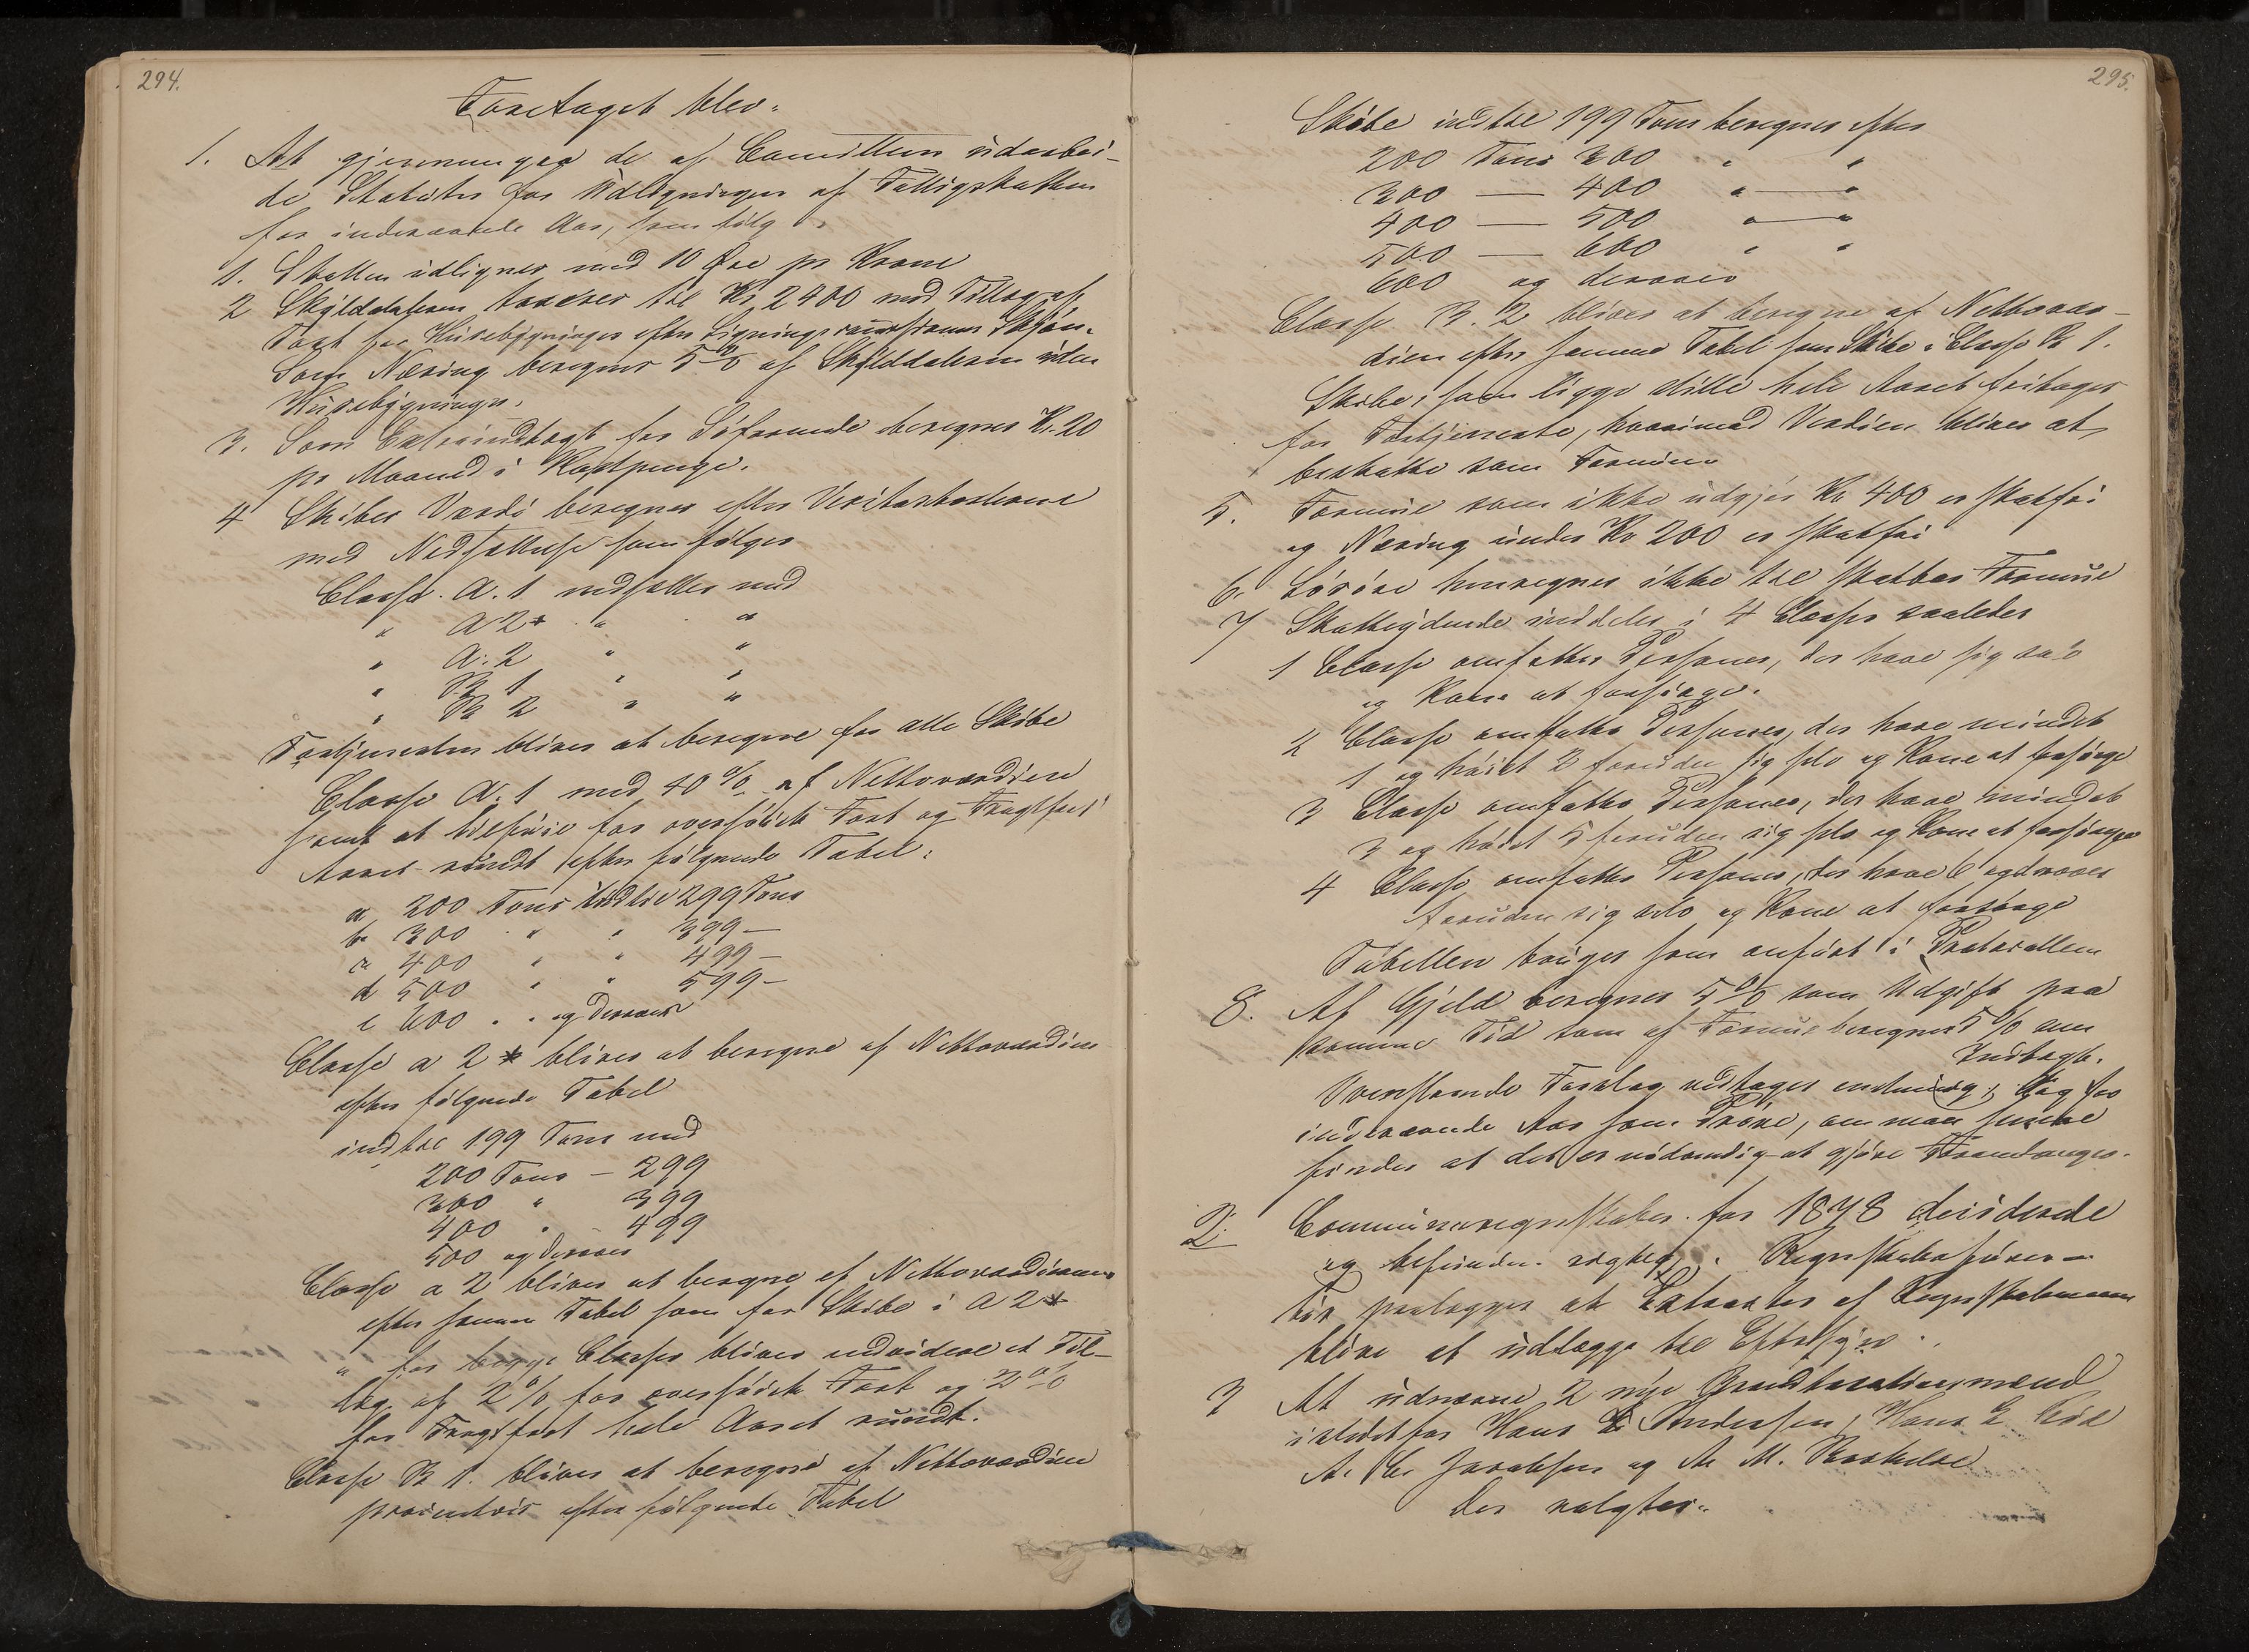 294.
Foretaget blev:
1. At gjennemgaa de af Comitteen udarbei-
de Statuter for Udligningen af Fattigskatten
for indeværende Aar, som følg
1. Skatten udlignes med 10 Øre pr Krone
2 Skylddaleren taxeres til Kr. 2400 med Tillæg af
Taxt for Husebygninger efter Ligningscommissionens Skjøn.
Som Næring beregnes 5% af Skylddaleren uden
Husebygninger.
3. Som Extraindtægt for Søfarende beregnes Kr. 20
pr Maaned i Kostpenge.
4 Skibes Værdi beregnes efter Veritastaxterne
med Nedsættelse som følger
Classe A. 1 nedsættes med
" A 2* " "
" A. 2 " "
" B 1 " "
" B 2 " "
Fortjenesten bliver at beregne for alle Skibe
Classe A. 1 med 10% af Nettoværdien
samt at tilføie for oversøisk Fart og Fragtfart
Aaret rundt efter følgende Tabel:
a 200 Tons indtil 299 Tons
b 300 " " 399 —
c 400 " " 499 —
d 500 " " 599 —
e 600 " " og derover
Classe a 2* bliver at beregne af Nettoværdien
efter følgende Tabel
indtil 199 Tons med
200 Tons — 299
300 " 399
400 " - 499
500 og derover
Classe a 2 bliver at beregne af Nettoværdien
efter samme Tabel som for Skibe i A 2*
" for begge Classer bliver endvidere et Til-
læg af 2% for oversøisk Fart og 2%
for Fragtfart hele Aaret rundt.
Classe B 1. bliver at beregne af Nettoværdien
procentvis efter følgende Tabel
295.
Skibe indtil 199 Tons beregnes efter
200 Tons 300 " "
300 — 400 " — "
400 — 500 " — "
500 — 600 " "
600 og derover
Classe B. 2 bliver at beregne af Nettovær-
dien efter samme Tabel som Skibe i Classe B 1.
Skibe, som ligge stille hele Aaret fritages
for Fortjeneste, hvorimod Værdien bliver at
beskatte som Formue
5. Formue som ikke udgjør Kr 400 er skatfri
og Næring under Kr 200 er skatfri
6. Løsøre henregnes ikke til skatbar Formue
7 Skatteydende inddeles i 4 Classer saaledes
1 Classe omfatter Personer, der have sig selv
og Kone at forsørge.
2 Classe omfatter Personer, der have mindst
1 og høist 2 foruden sig selv og Kone at forsørge
3 Classe omfatter Personer, der have mindst
3 og høist 5 foruden sig selv og Kone at forsørge
4 Classe omfatter Personer, der have 6 og derover
foruden sig selv og Kone at forsørge
Tabellen bruges som anført i Protocollen
8. Af Gjeld beregnes 5% som Udgift paa
samme Tid som af Formue beregnes 5% som
Indtægt.
Ovenstaaende Forslag vedtages enstemmig, dog for
indeværende Aar som Prøve, om man senere
finder at det er nødvendig at gjøre Forandringer.
2. Communeregnskabet for 1878 deciderede
og befundet rigtig. Regnskabsføreren
paalægges at Extracter af Regnskaberne
blive at udlægge til Eftersyn.
3 At udnævne 2 nye Brandtaxationsmænd
istedetfor Hans Andersen, Hans
A. Jacobsen og A. M.
Der valgtes: